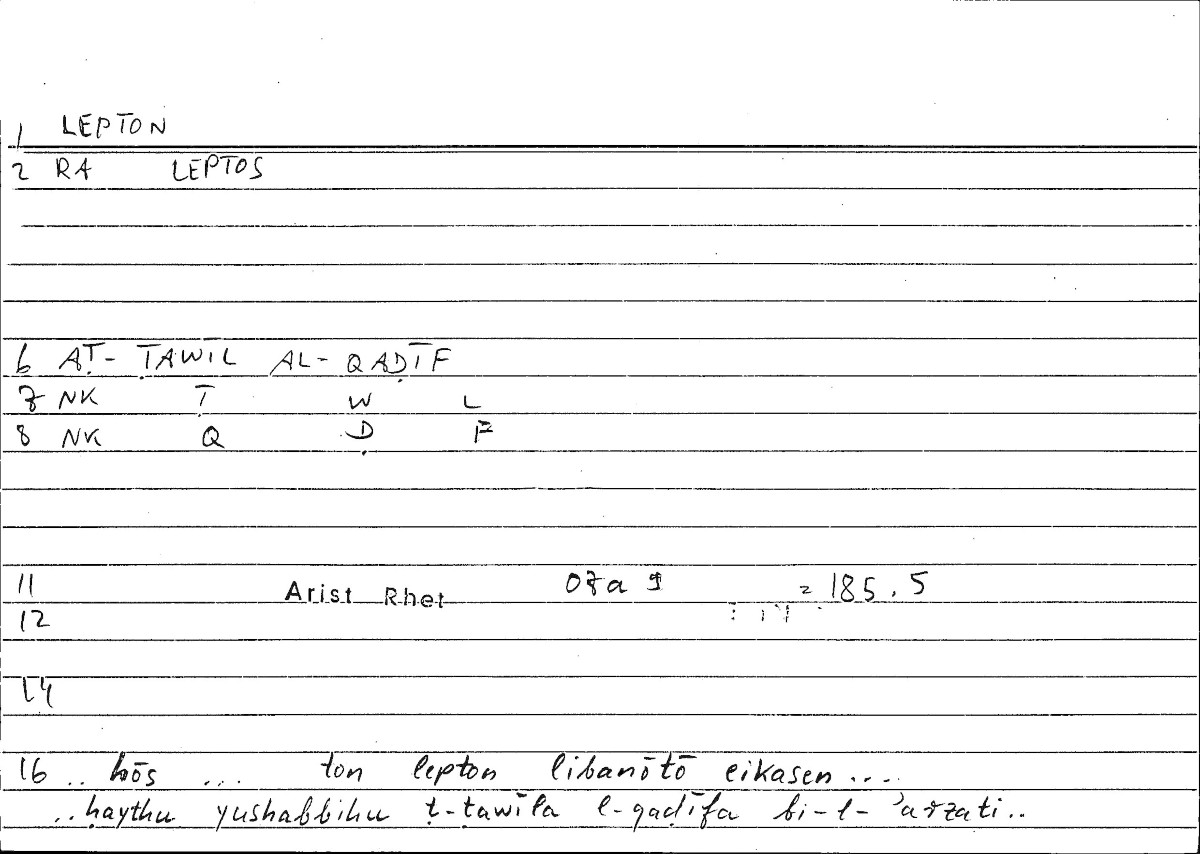 1 LEPTON
2 RA LEPTOS
6 AṬ- ṬAWĪL AL- QAḌĪF
7 NK Ṭ W L
8 NK Q Ḍ F
11 Arist Rhet 07a 9 = 185.5
12
14
16 .. hōs ... ton lepton libanōtō eikasen ....
.. ḥaythu yushabbihu ṭ-ṭawīla l-qaḍīfa bi-l-ʾarzati ..